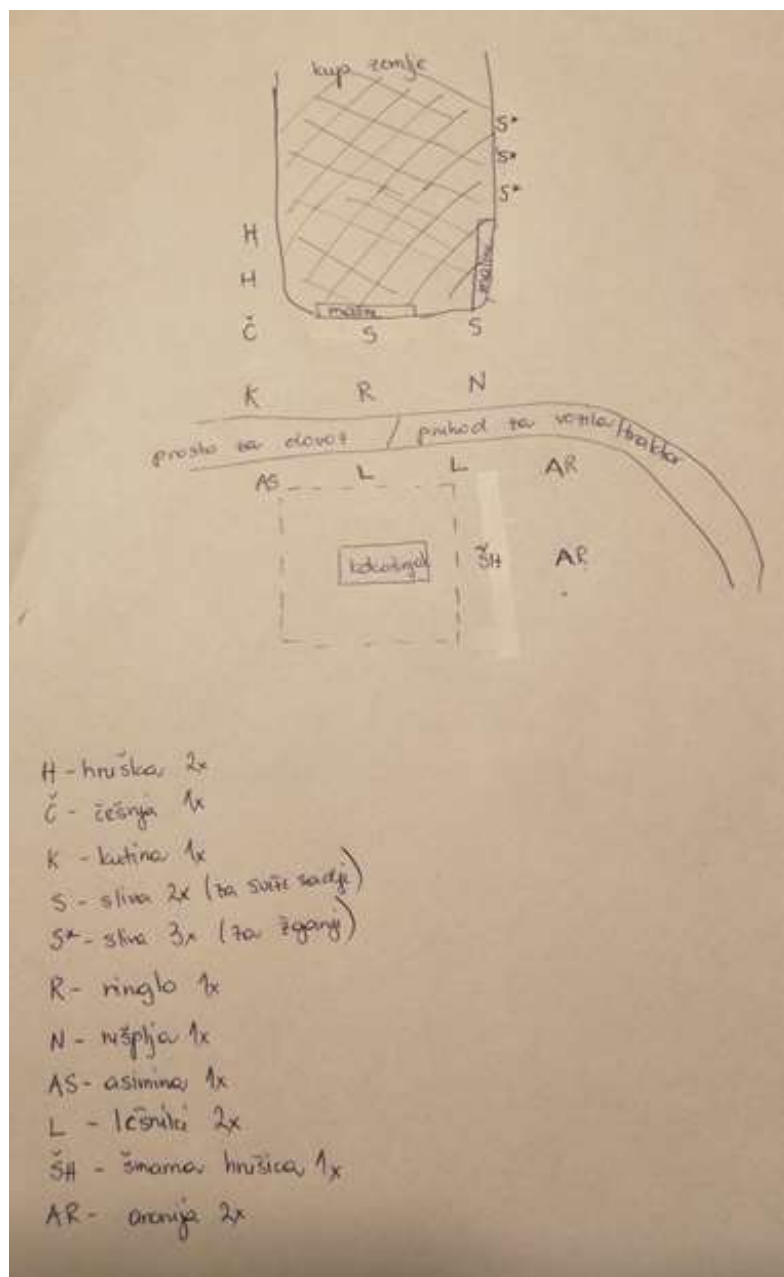 kup zemlje
S*
S*
S*
H
H
Č
maline
maline
S
S
K R N
prosto za dovoz / prihod za vozila/traktor
AS L L AR
kokošnjak
ŠH AR
H - hruška 2x
Č - češnja 1x
K - kutina 1x
S - sliva 2x (za sveže sadje)
S* - sliva 3x (za žganje)
R - ringlo 1x
N - nišplja 1x
AS - asimina 1x
L - lešniki 2x
ŠH - šmarna hrušica 1x
AR - aronija 2x